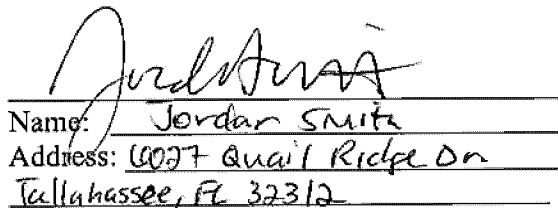 Name: Jordan Smith
Address: 6027 Quail Ridge Dr
Tallahassee, FL 32312